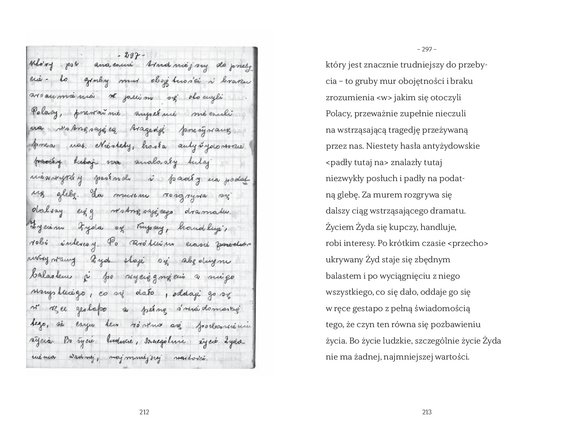 - 297 -
który jest znacznie trudniejszy do przeby-
cia - to gruby mur obojętności i braku
zrozumienia w jakim się otoczyli
Polacy, przeważnie zupełnie nieczuli
na wstrząsającą tragedję przeżywaną
przez nas. Niestety, hasła antyżydowskie
padły tutaj na znalazły tutaj
niezwykły posłuch i padły na podat-
ną glebę. Za murem rozgrywa się
dalszy ciąg wstrząsającego dramatu.
Życiem Żyda się kupczy, handluje,
robi interesy. Po krótkim czasie
ukrywany Żyd staje się zbędnym
balastem i po wyciągnięciu z niego
wszystkiego, co się dało, oddaje go się
w ręce gestapo z pełną świadomością
tego, że czyn ten równa się pozbawieniu
życia. Bo życie ludzkie, szczególnie życie Żyda
nie ma żadnej, najmniejszej wartości.
212
- 297 -
który jest znacznie trudniejszy do przeby-
cia – to gruby mur obojętności i braku
zrozumienia <w> jakim się otoczyli
Polacy, przeważnie zupełnie nieczuli
na wstrząsającą tragedję przeżywaną
przez nas. Niestety hasła antyżydowskie
<padły tutaj na> znalazły tutaj
niezwykły posłuch i padły na podat-
ną glebę. Za murem rozgrywa się
dalszy ciąg wstrząsającego dramatu.
Życiem Żyda się kupczy, handluje,
robi interesy. Po krótkim czasie <przecho>
ukrywany Żyd staje się zbędnym
balastem i po wyciągnięciu z niego
wszystkiego, co się dało, oddaje go się
w ręce gestapo z pełną świadomością
tego, że czyn ten równa się pozbawieniu
życia. Bo życie ludzkie, szczególnie życie Żyda
nie ma żadnej, najmniejszej wartości.
213